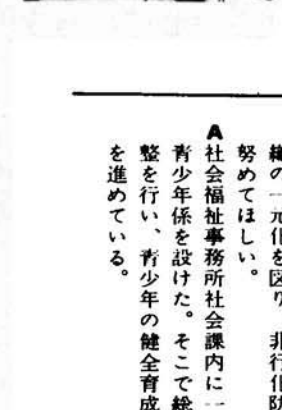 織の一元化を図り、非行化防
努めてほしい。
A社会福祉事務所社会課内に一
青少年係を設けた。そこで総
整を行い、青少年の健全育成
を進めている。